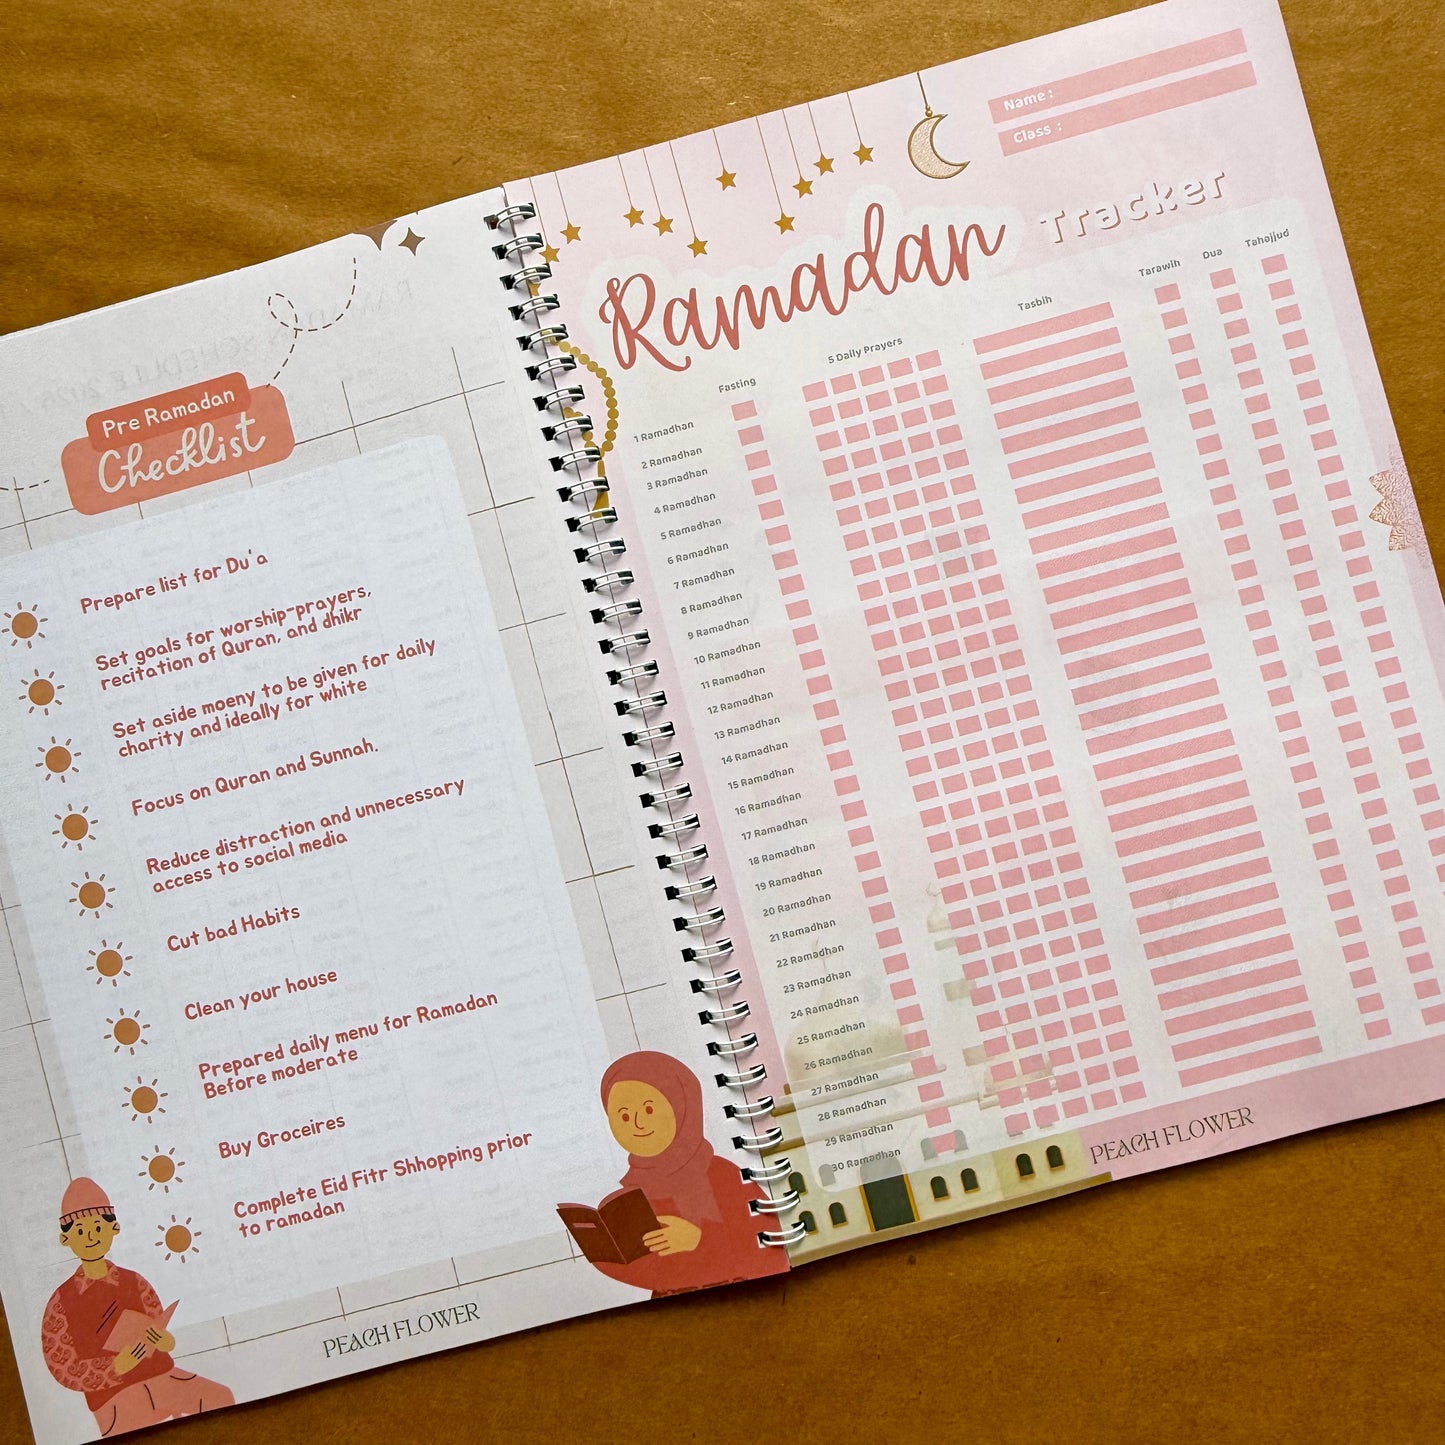 Pre Ramadan
Checklist
Prepare list for Du'a
Set goals for worship-prayers,
recitation of Quran, and dhikr
Set aside moeny to be given for daily
charity and ideally for white
Focus on Quran and Sunnah.
Reduce distraction and unnecessary
access to social media
Cut bad Habits
Clean your house
Prepared daily menu for Ramadan
Before moderate
Buy Groceires
Complete Eid Fitr Shhopping prior
to ramadan
PEACH FLOWER
Name :
Class :
Ramadan Tracker
Fasting 5 Daily Prayers Tasbih Tarawih Dua Tahajjud
1 Ramadhan
2 Ramadhan
3 Ramadhan
4 Ramadhan
5 Ramadhan
6 Ramadhan
7 Ramadhan
8 Ramadhan
9 Ramadhan
10 Ramadhan
11 Ramadhan
12 Ramadhan
13 Ramadhan
14 Ramadhan
15 Ramadhan
16 Ramadhan
17 Ramadhan
18 Ramadhan
19 Ramadhan
20 Ramadhan
21 Ramadhan
22 Ramadhan
23 Ramadhan
24 Ramadhan
25 Ramadhan
26 Ramadhan
27 Ramadhan
28 Ramadhan
29 Ramadhan
30 Ramadhan
PEACH FLOWER